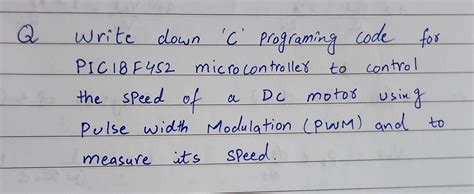 Q Write down 'C' Programing code for
PIC18F452 microcontroller to control
the speed of a DC motor using
Pulse width Modulation (PWM) and to
measure its speed.